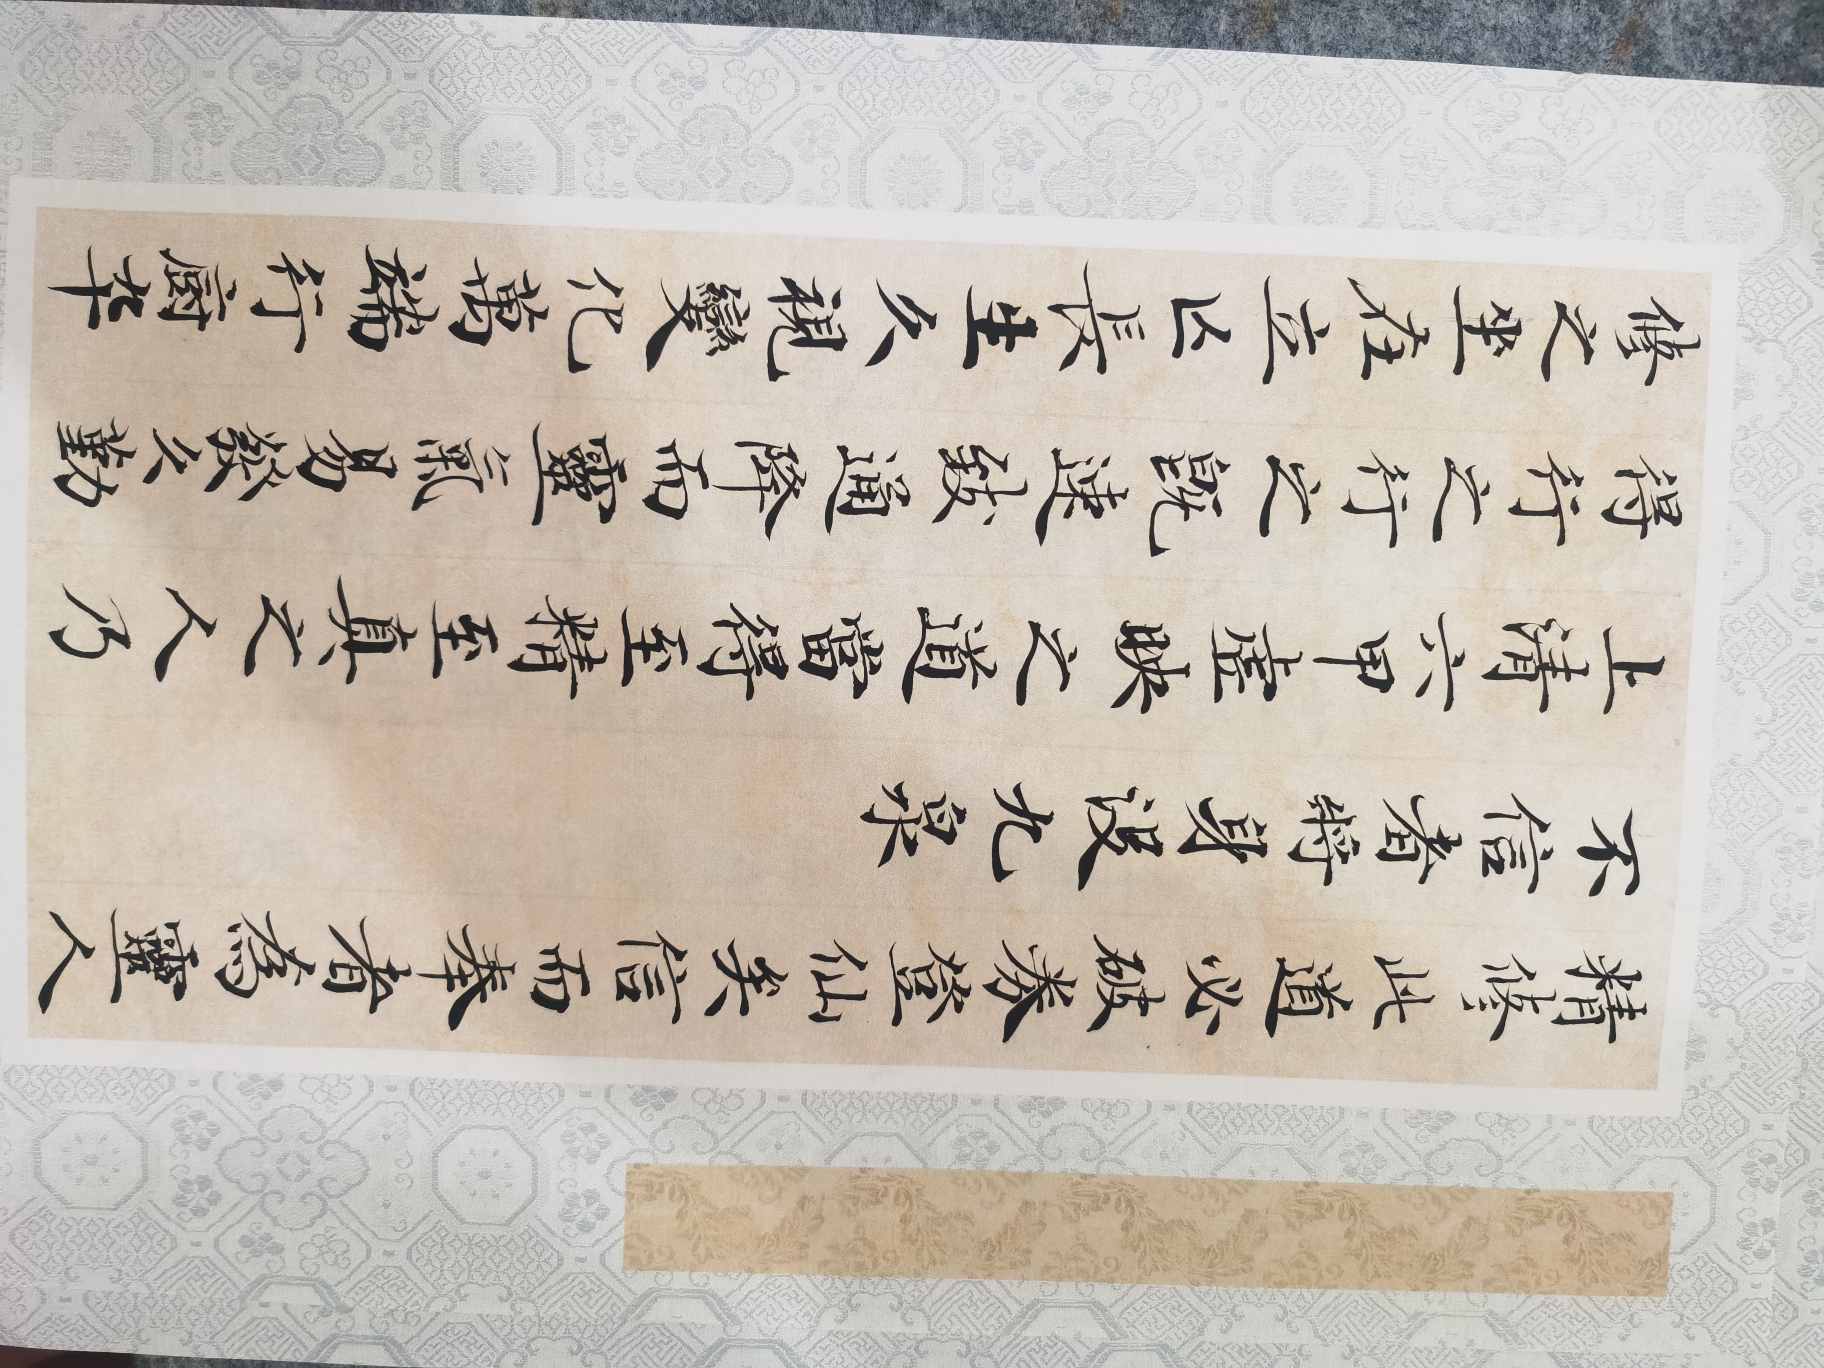 精修此道必破券登仙矣信而奉者爲靈人
不信者將身沒九泉
上清六甲虛映之道當得至精至真之人乃
得行之行之既速致通降而靈氣易發久勤
修之坐在立亡長生久視變化萬端行廚卒